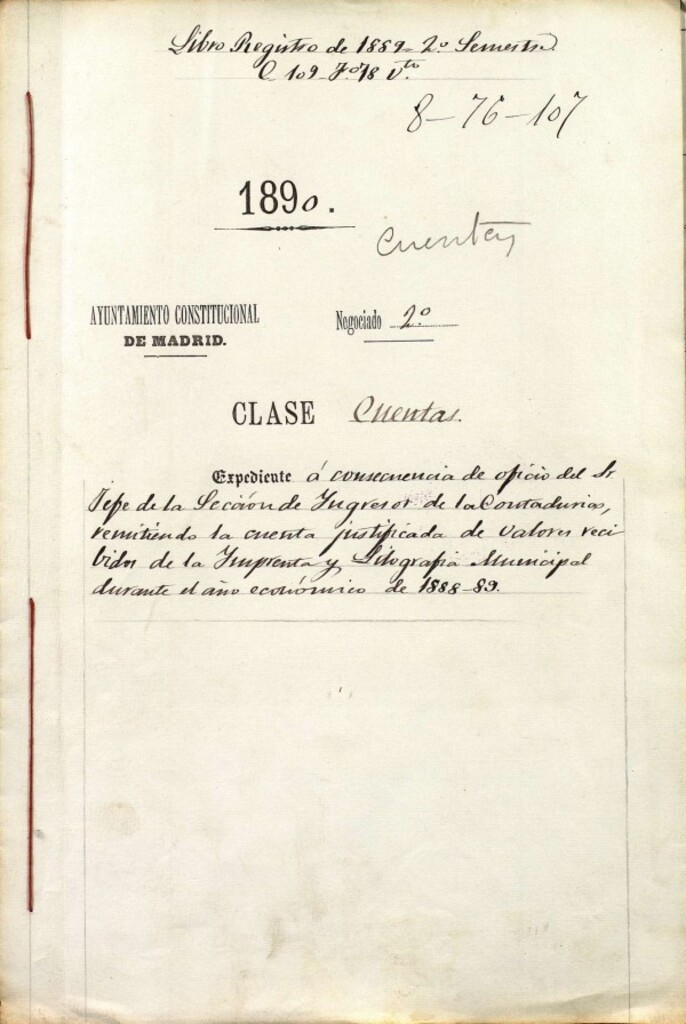 Libro Registro de 1889 - 2º Semestre.
C. 109 - Fº 78 Vto.
8-76-107
1890.
Cuentas
AYUNTAMIENTO CONSTITUCIONAL
DE MADRID.
Negociado 2º
CLASE Cuentas.
Expediente á consecuencia de oficio del Sr.
Jefe de la Sección de Ingresos de la Contaduria,
remitiendo la cuenta justificada de valores reci-
bidos de la Imprenta y Litografia Municipal
durante el año económico de 1888-89.